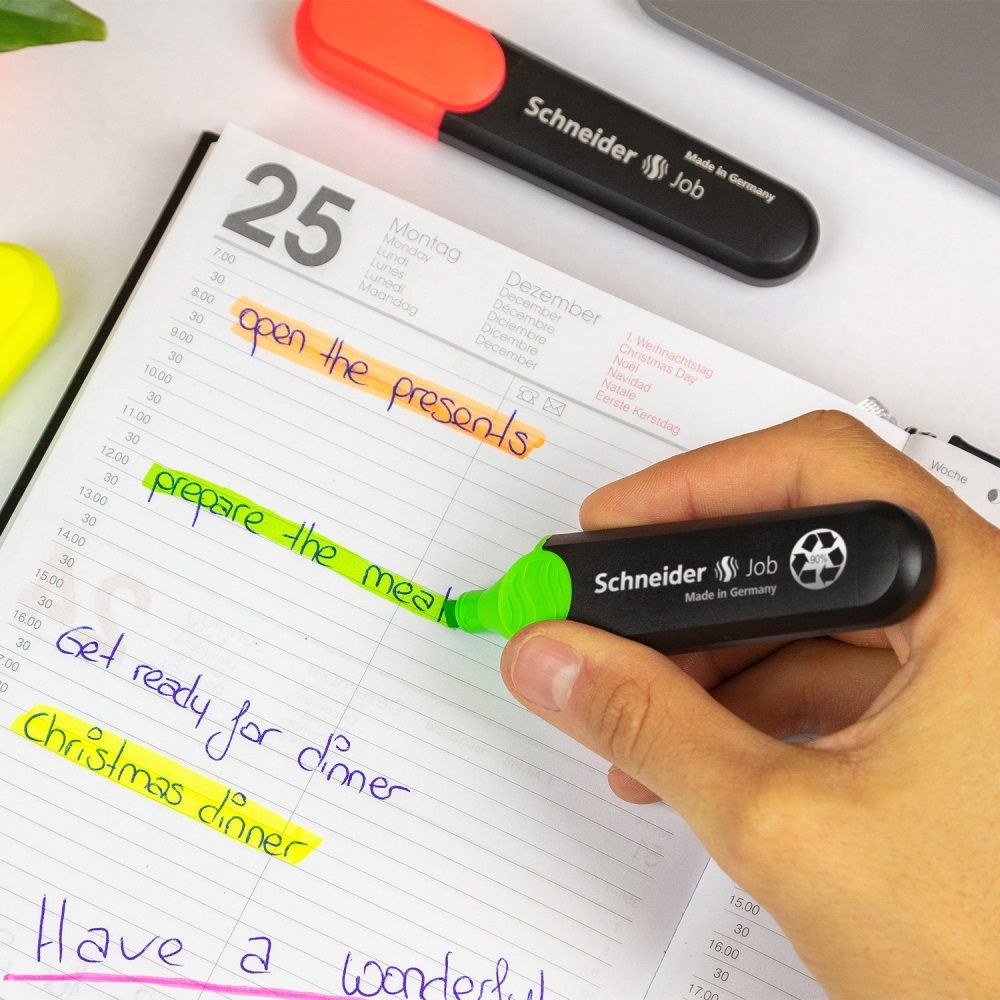 Schneider Job
Made in Germany
25
Montag
Monday
Lundi
Lunes
Lunedì
Maandag
Dezember
December
Décembre
Diciembre
Dicembre
December
1. Weihnachtstag
Christmas Day
Noël
Navidad
Natale
Eerste Kerstdag
7.00
30
8.00
30
9.00
30
10.00
30
11.00
30
12.00
30
13.00
30
14.00
30
15.00
30
16.00
30
open the presents
prepare the meal
Get ready for dinner
Christmas dinner
Have a wonderful
Schneider Job
Made in Germany
90%
Woche
15.00
30
16.00
30
17.00